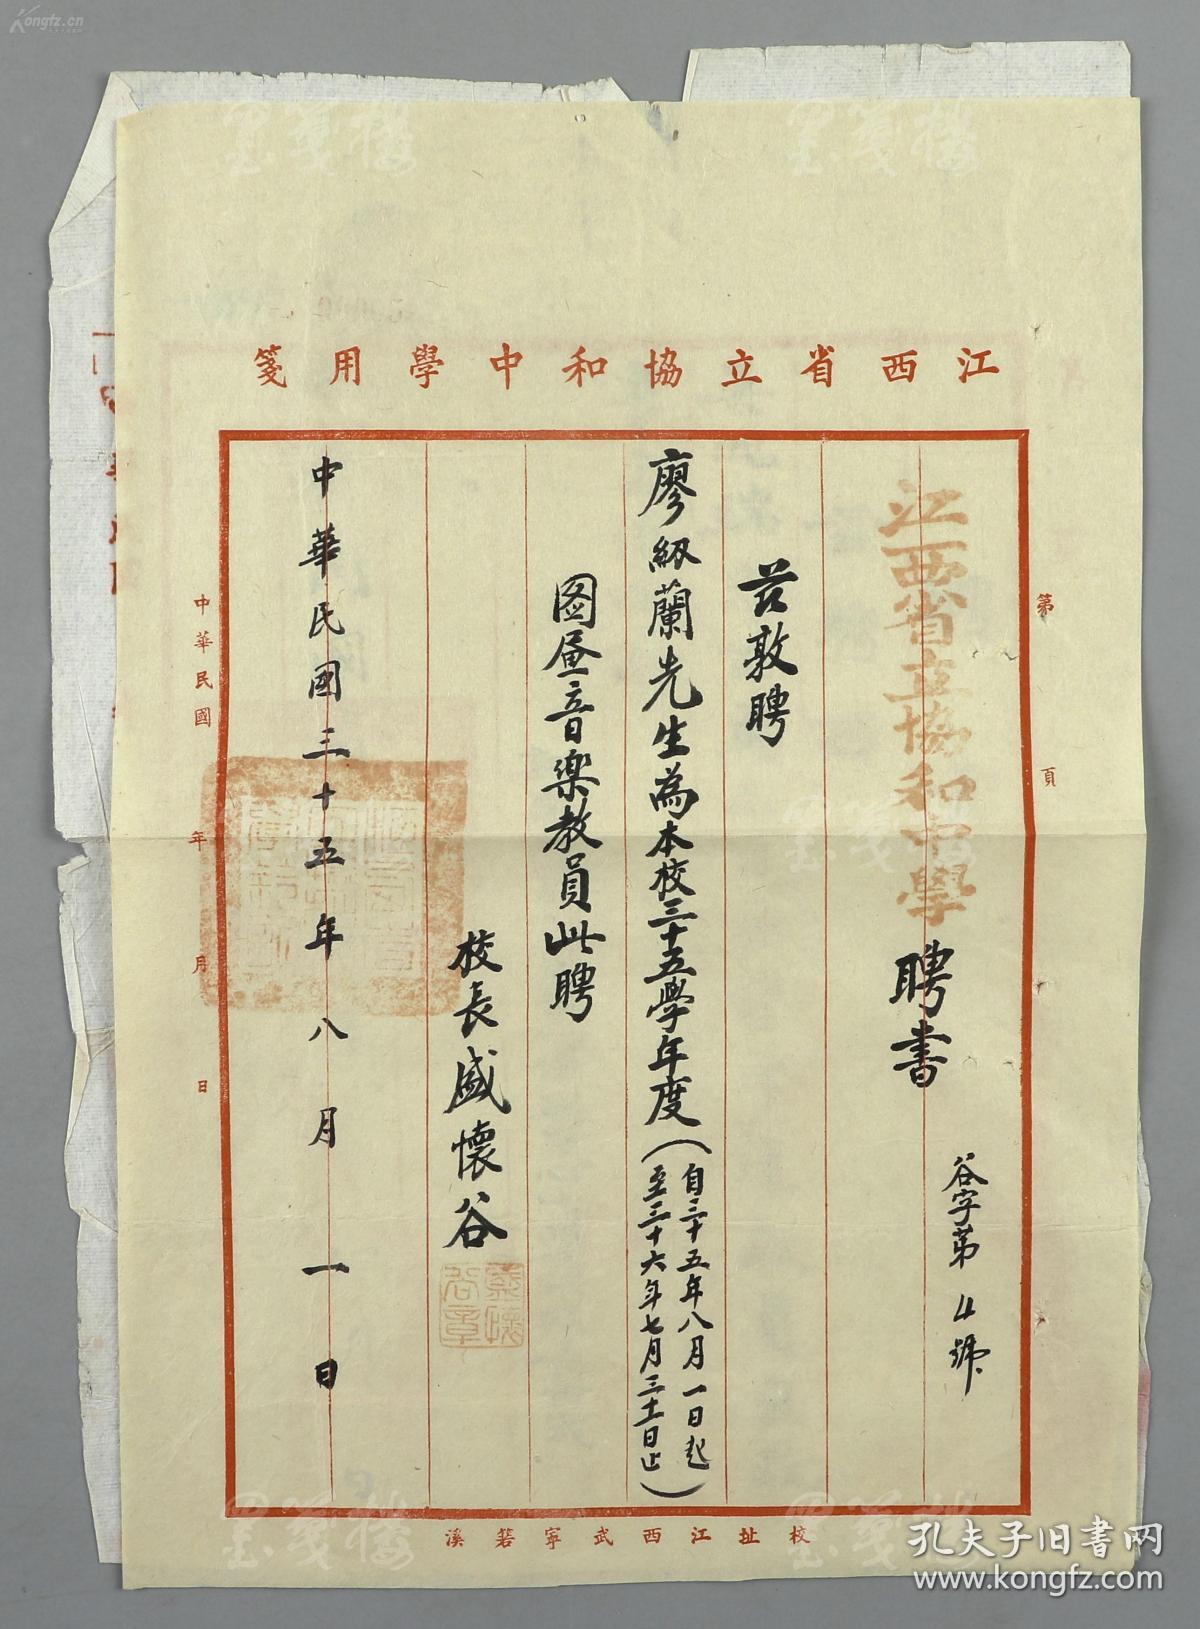 Kongfz.cn
江西省立協和中學用箋
江西省立協和中學聘書
谷字第4號
茲敦聘
廖級蘭先生為本校三十五學年度(自三十五年八月一日起
至三十六年七月三十一日止)
图画音樂教員此聘
校長盛懷谷
中華民國三十五年八月一日
第 頁
中華民國 年 月 日
校址江西武寧箬溪
墨笺楼
墨笺楼
墨笺楼
墨笺楼
墨笺楼
墨笺楼
孔夫子旧书网
www.kongfz.com